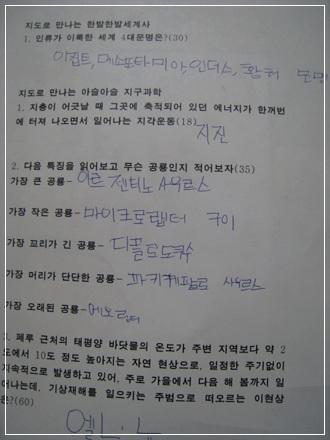 지도로 만나는 한발한발세계사
1. 인류가 이룩한 세계 4대문명은?(30)
이집트, 메소포타미아, 인더스, 황허 문명
지도로 만나는 아슬아슬 지구과학
1. 지층이 어긋날 때 그곳에 축적되어 있던 에너지가 한꺼번
에 터져 나오면서 일어나는 지각운동(18)
지진
2. 다음 특징을 읽어보고 무슨 공룡인지 적어보자(35)
가장 큰 공룡-아르젠티노사우르스
가장 작은 공룡-마이크로랩터 구이
가장 꼬리가 긴 공룡-디플로도쿠스
가장 머리가 단단한 공룡-파키케팔로 사우르스
가장 오래된 공룡-에오랍터
3. 페루 근처의 태평양 바닷물의 온도가 주변 지역보다 약 2
도에서 10도 정도 높아지는 자연 현상으로, 일정한 주기없이
지속적으로 발생하고 있어, 주로 가을에서 다음 해 봄까지 일
어나는데, 기상재해를 일으키는 주범으로 떠오르는 이현상
은?(60)
엘니뇨